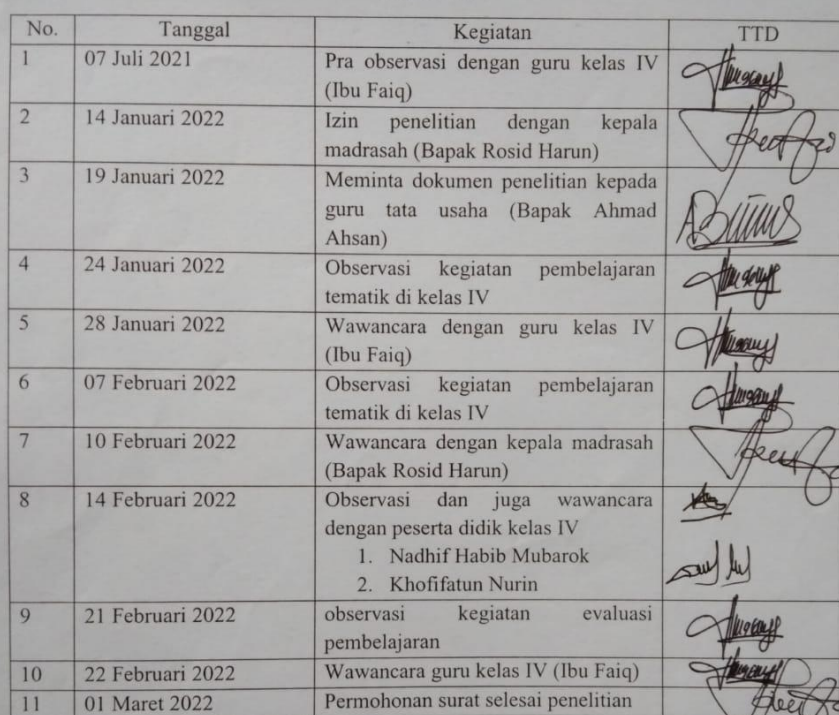 No. Tanggal Kegiatan TTD
1 07 Juli 2021 Pra observasi dengan guru kelas IV
(Ibu Faiq)
2 14 Januari 2022 Izin penelitian dengan kepala
madrasah (Bapak Rosid Harun)
3 19 Januari 2022 Meminta dokumen penelitian kepada
guru tata usaha (Bapak Ahmad
Ahsan)
4 24 Januari 2022 Observasi kegiatan pembelajaran
tematik di kelas IV
5 28 Januari 2022 Wawancara dengan guru kelas IV
(Ibu Faiq)
6 07 Februari 2022 Observasi kegiatan pembelajaran
tematik di kelas IV
7 10 Februari 2022 Wawancara dengan kepala madrasah
(Bapak Rosid Harun)
8 14 Februari 2022 Observasi dan juga wawancara
dengan peserta didik kelas IV
1. Nadhif Habib Mubarok
2. Khofifatun Nurin
9 21 Februari 2022 observasi kegiatan evaluasi
pembelajaran
10 22 Februari 2022 Wawancara guru kelas IV (Ibu Faiq)
11 01 Maret 2022 Permohonan surat selesai penelitian